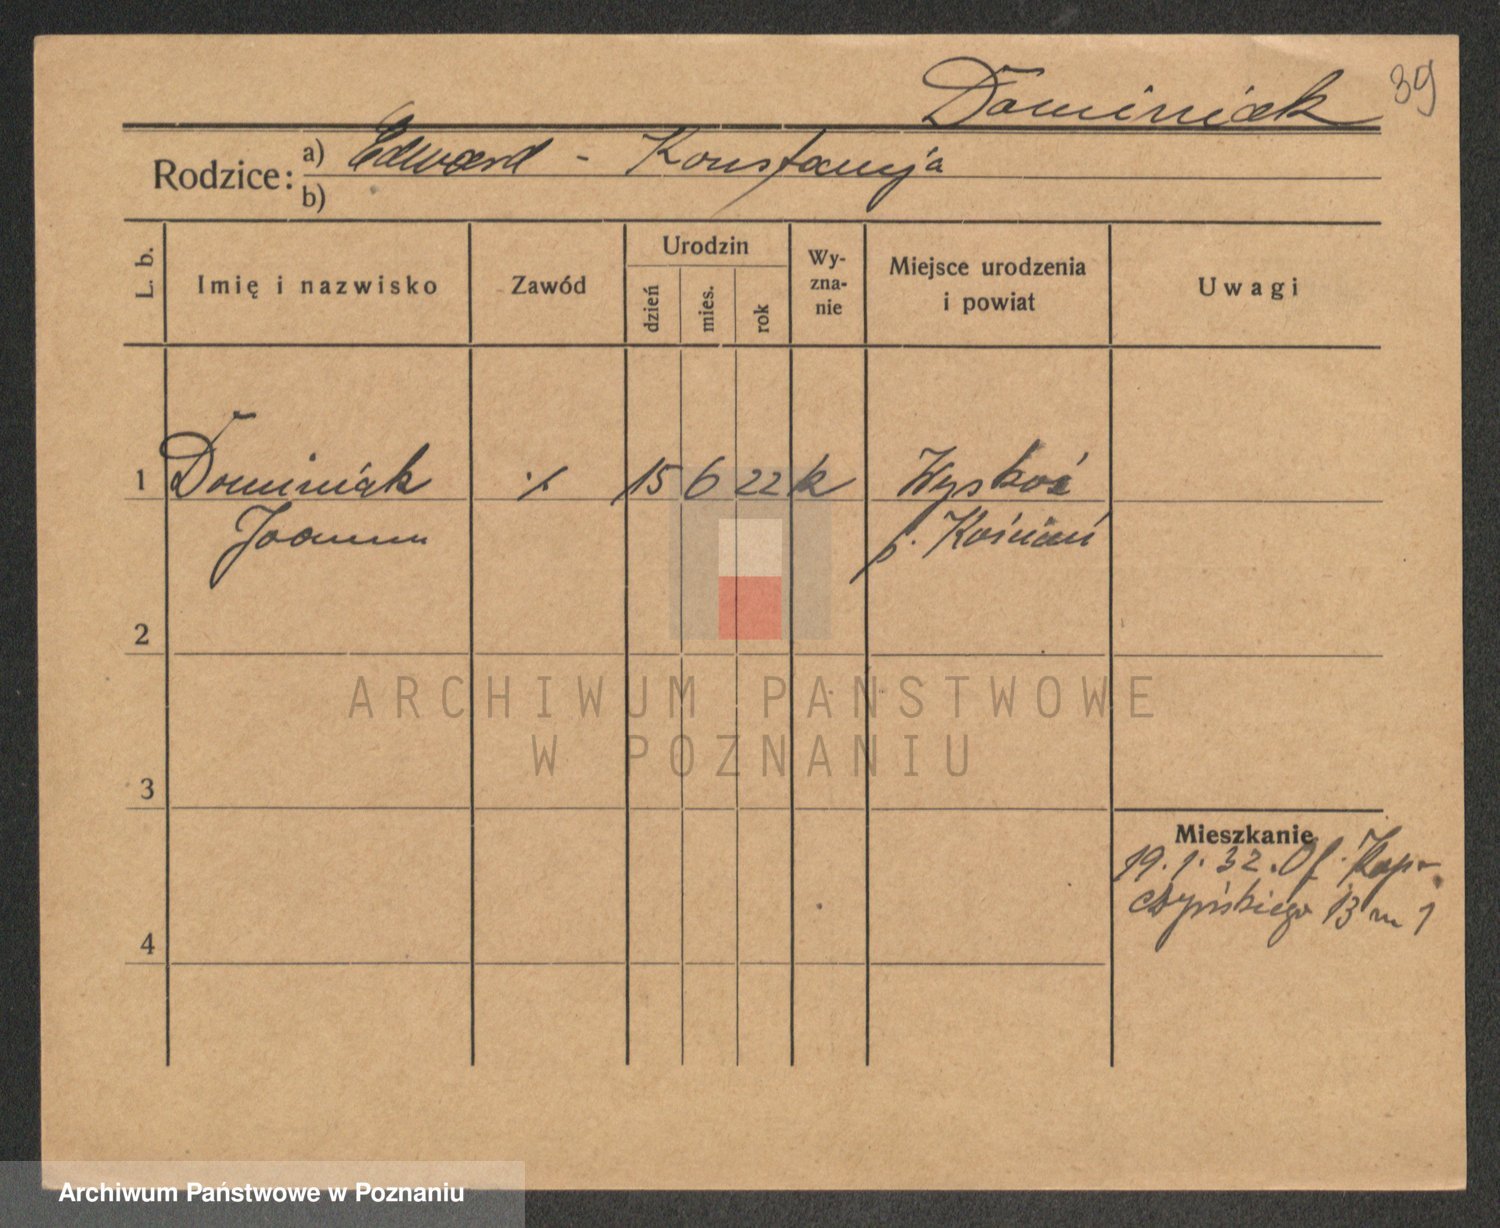 Dominiak 39
Rodzice: a) Edward - Konstancja
b)
L. b. Imię i nazwisko Zawód Urodzin dzień mies. rok Wy-zna-nie Miejsce urodzenia i powiat Uwagi
1 Dominiak ./. 15 6 22 k Wyskoć
Joanna p. Kościan
2
ARCHIWUM PAŃSTWOWE
W POZNANIU
3
Mieszkanie
19.1.32. Of.
13 m 1
4
Archiwum Państwowe w Poznaniu